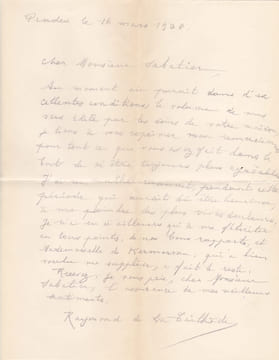 le 16 mars 1920.
Cher Monsieur Sabatier,
Au moment où paraît dans d'ex
cellentes conditions le volume de mes
vers édité par les soins de votre
je tiens à vous exprimer mes
pour tout ce que vous avez fait dans le
but de m'être toujours plus agréable.
J'ai pendant cette
période, qui aurait dû être heureuse,
des plus vives douleurs.
Je n'ai eu d'ailleurs qu'à me féliciter
en tous points, de nos bons rapports, et
Mademoiselle de qui a bien
voulu me suppléer, a fait le reste.
je vous prie, cher Monsieur
Sabatier, l'assurance de mes meilleurs
sentiments.
Raymond de La Tailhède